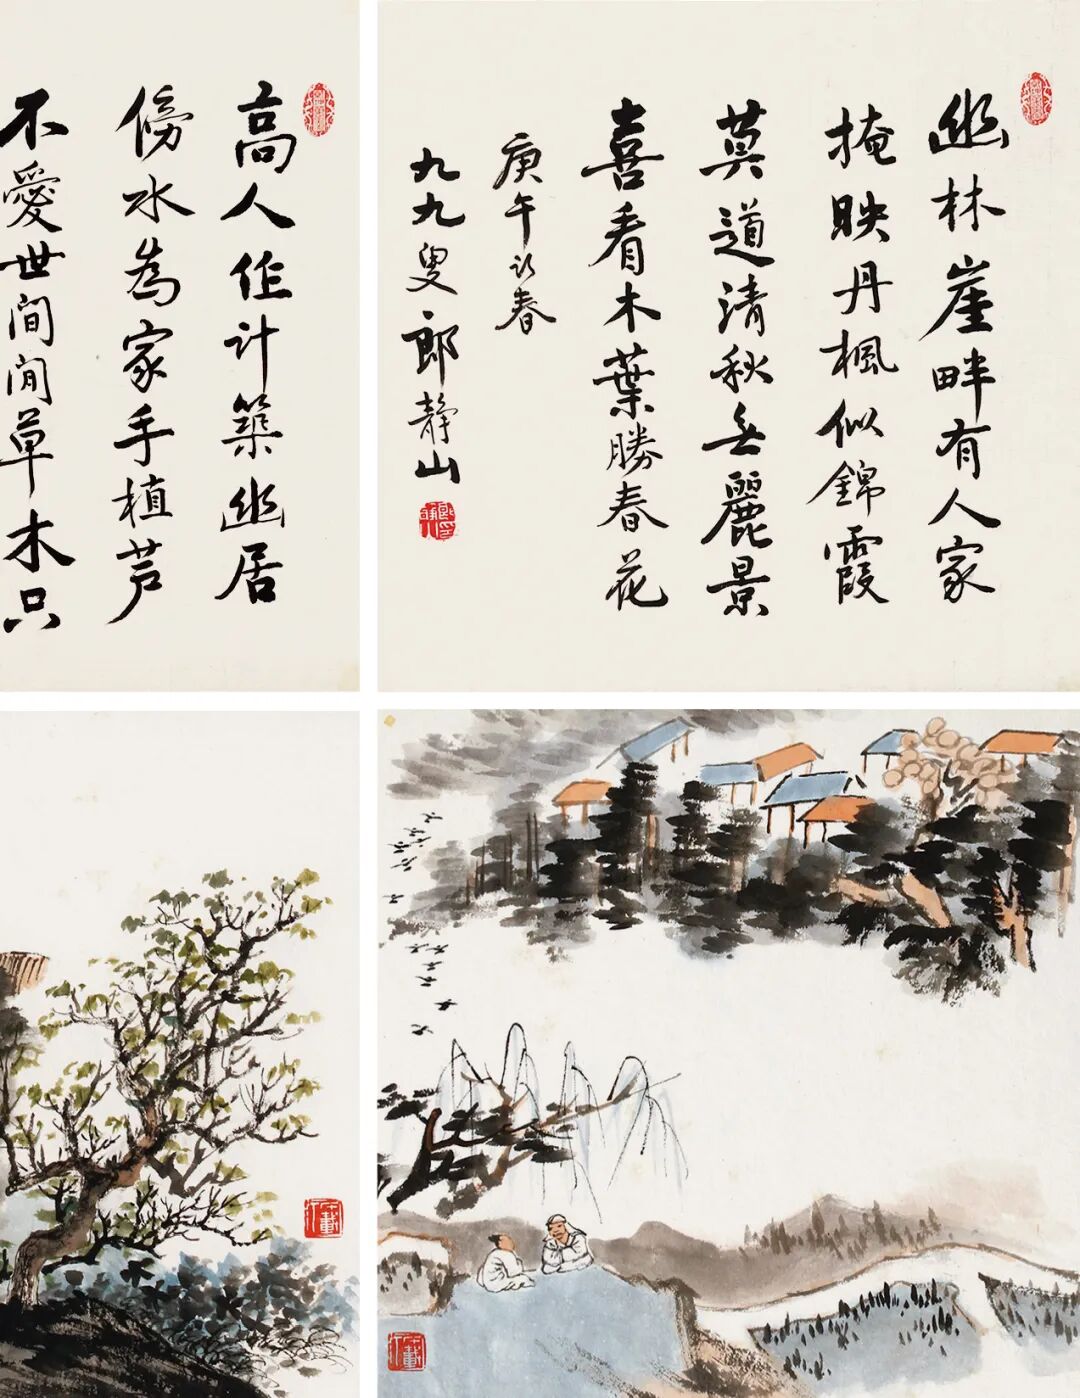 幽林崖畔有人家
掩映丹楓似錦霞
莫道清秋無麗景
喜看木葉勝春花
庚午新春
九九叟郎靜山
高人作計築幽居
傍水為家手植芦
不愛世間閒草木只